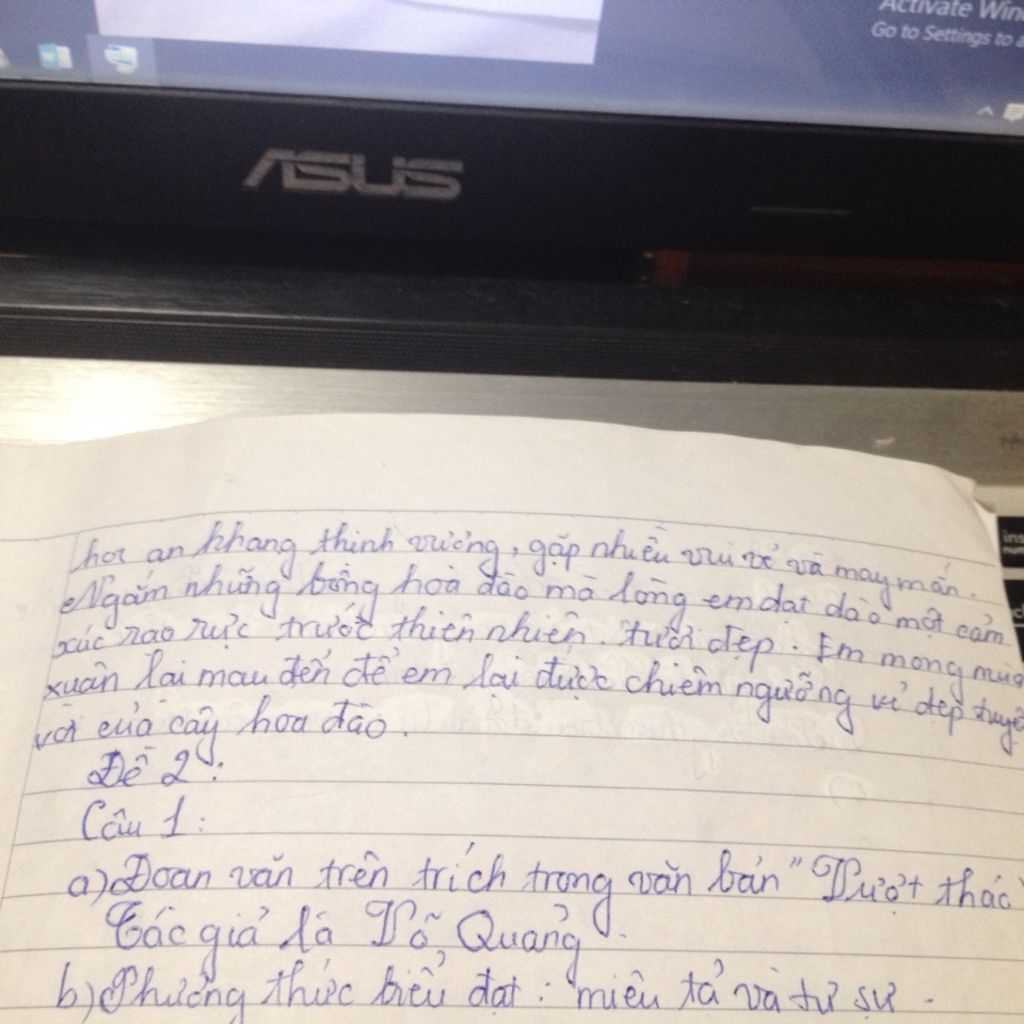 Activate Win
Go to Settings to a
ASUS
ins
hoa an khang thịnh vượng, gặp nhiều vui vẻ và may mắn.
Ngắm những bông hoa đào mà lòng em dạt dào một cảm
xúc rạo rực trước thiên nhiên tươi đẹp. Em mong mùa
xuân lại mau đến để em lại được chiêm ngưỡng vẻ đẹp tuyệ
vời của cây hoa đào.
Đề 2:
Câu 1:
a) Đoạn văn trên trích trong văn bản "Vượt thác"
Tác giả là Võ Quảng.
b) Phương thức biểu đạt: miêu tả và tự sự.